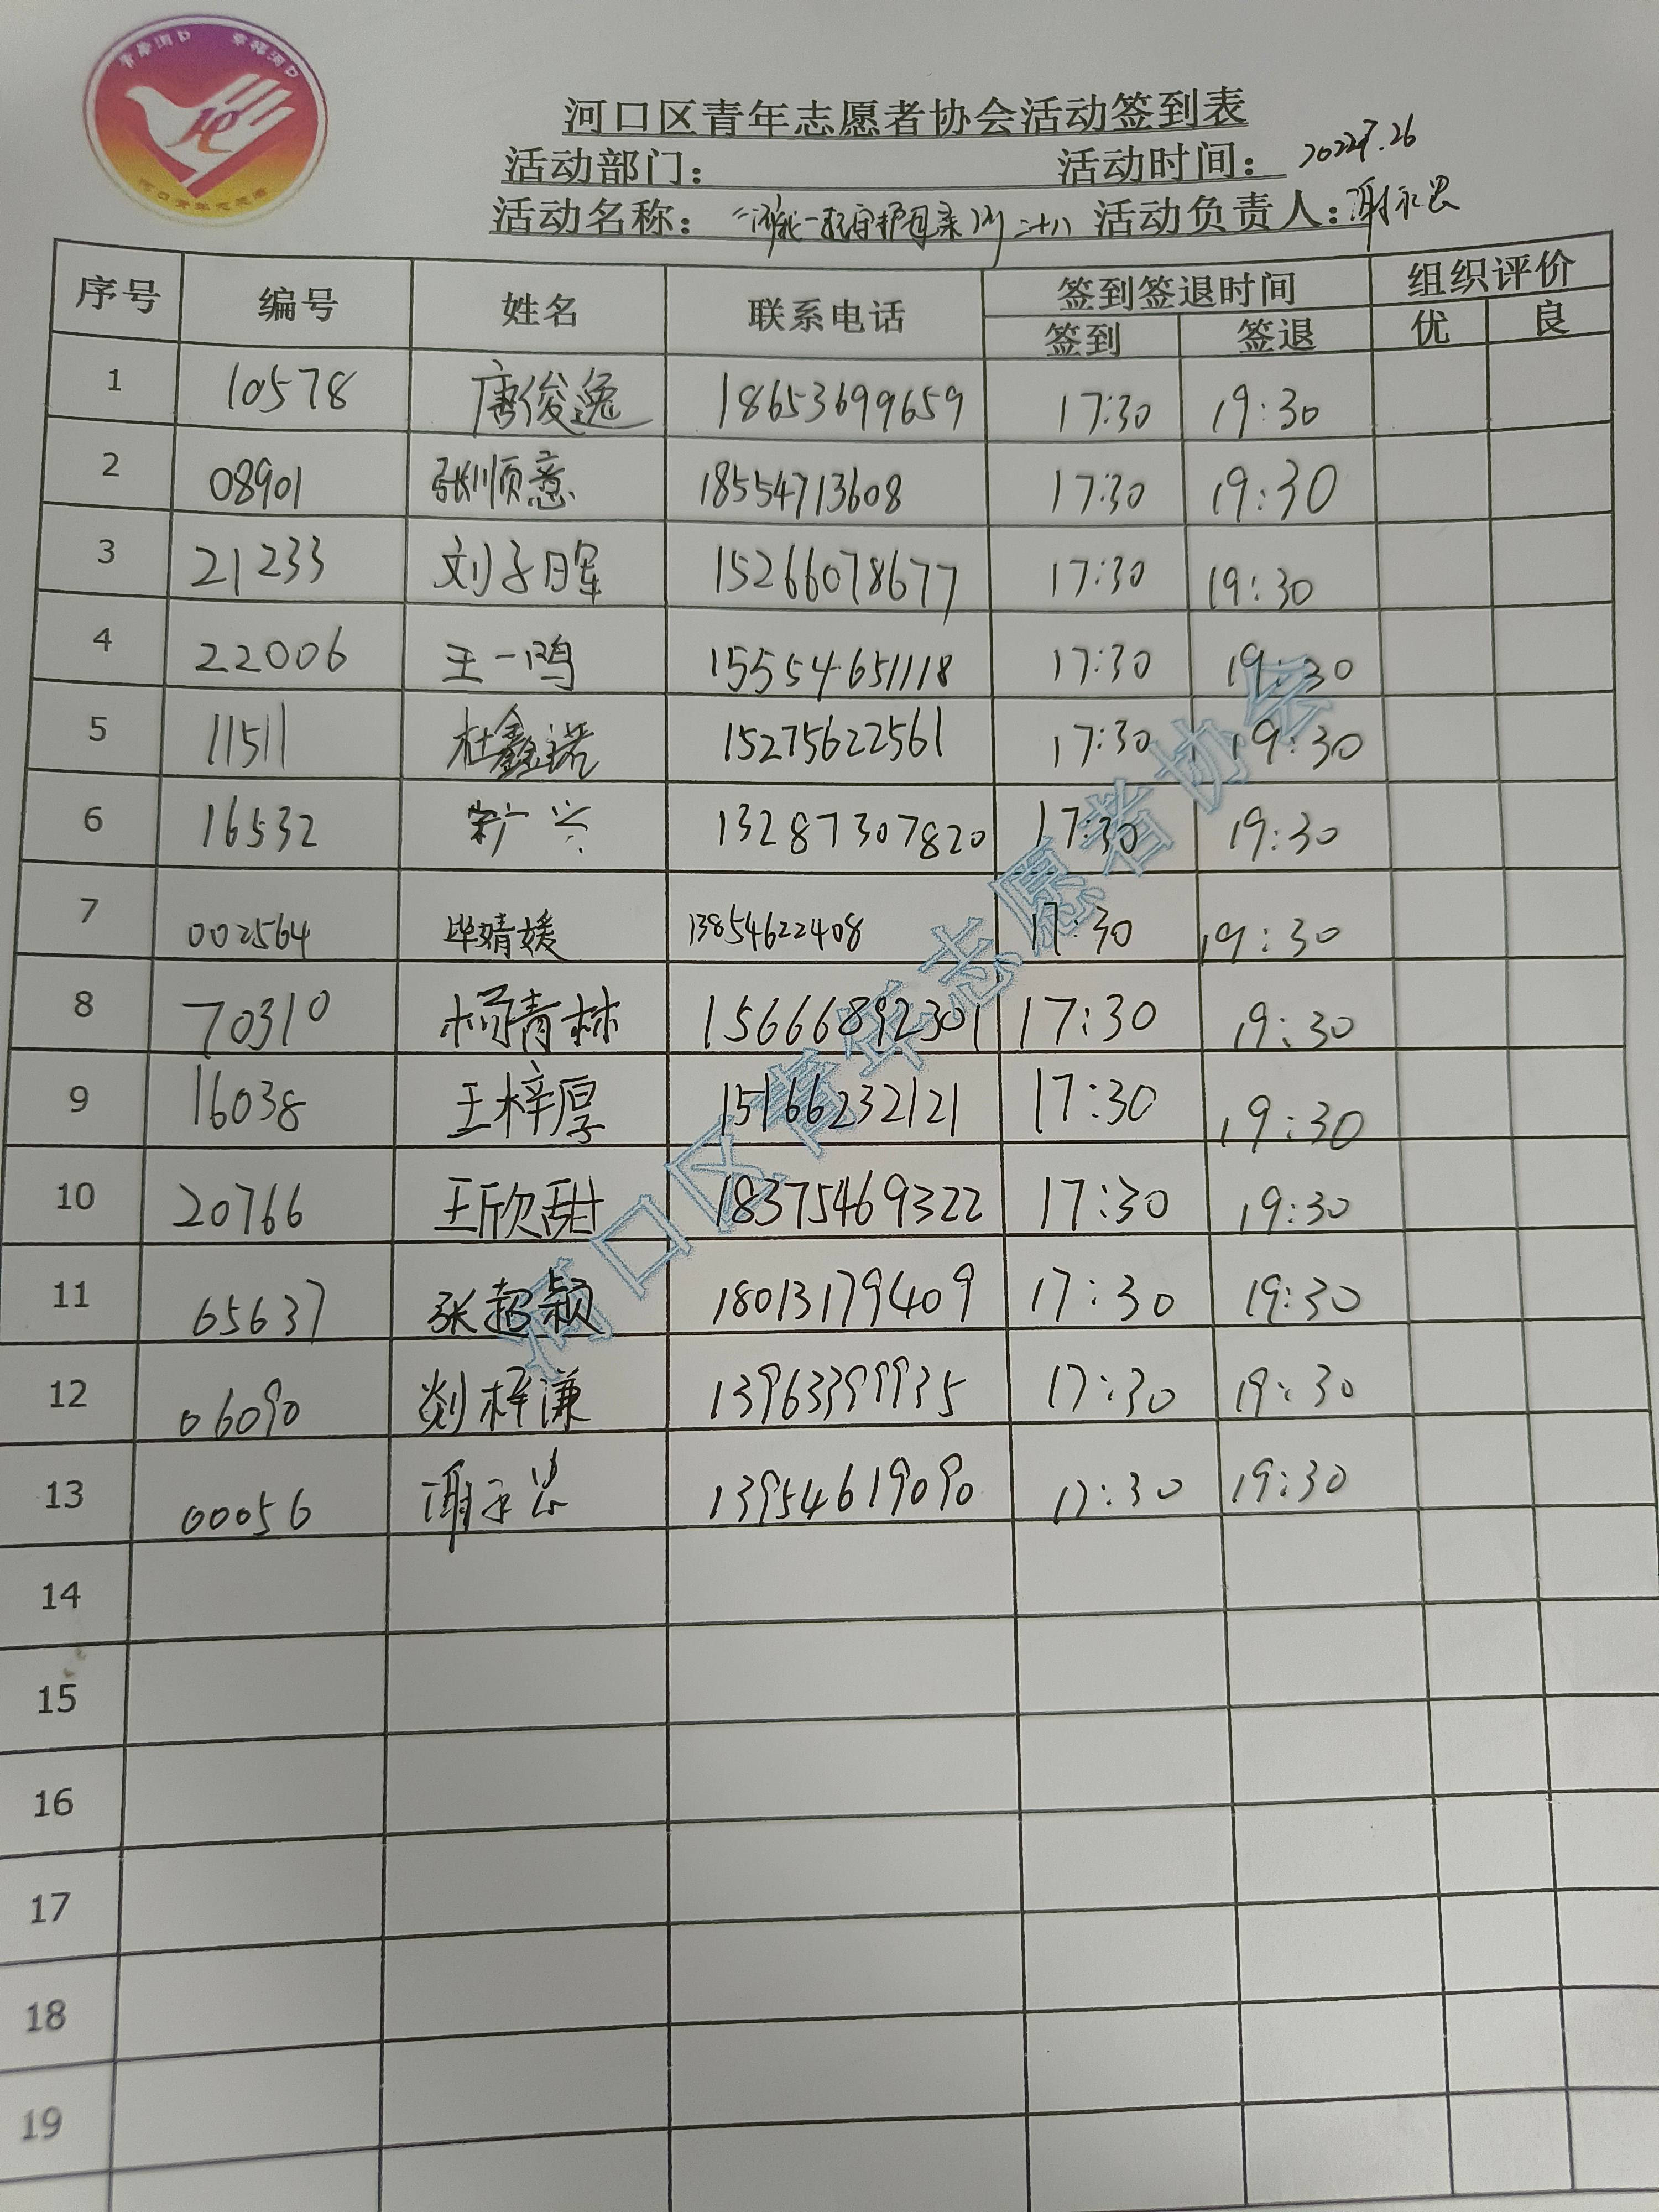 青春河口 幸福河口
河口区青年志愿者协会活动签到表
活动部门： 活动时间： 2022.7.26
活动名称： 一起守护母亲河 二十八 活动负责人：谢永忠
序号 编号 姓名 联系电话 签到签退时间 组织评价
签到 签退 优 良
1 10578 唐俊逸 18653699659 17:30 19:30
2 08901 张顺意 18554713608 17:30 19:30
3 21233 刘子晖 15266078677 17:30 19:30
4 22006 王一鸣 15554651118 17:30 19:30
5 11511 杜鑫诺 15275622561 17:30 19:30
6 16532 宋广兴 13287307820 17:30 19:30
7 002564 毕婧媛 13854622408 17:30 19:30
8 70310 杨青林 15666892301 17:30 19:30
9 16038 王梓厚 15166232121 17:30 19:30
10 20766 王欣甜 18375469322 17:30 19:30
11 65637 张超颖 18013179409 17:30 19:30
12 06090 剡梓谦 13963399935 17:30 19:30
13 00056 谢永忠 13954619090 17:30 19:30
14
15
16
17
18
19
河口区青年志愿者协会